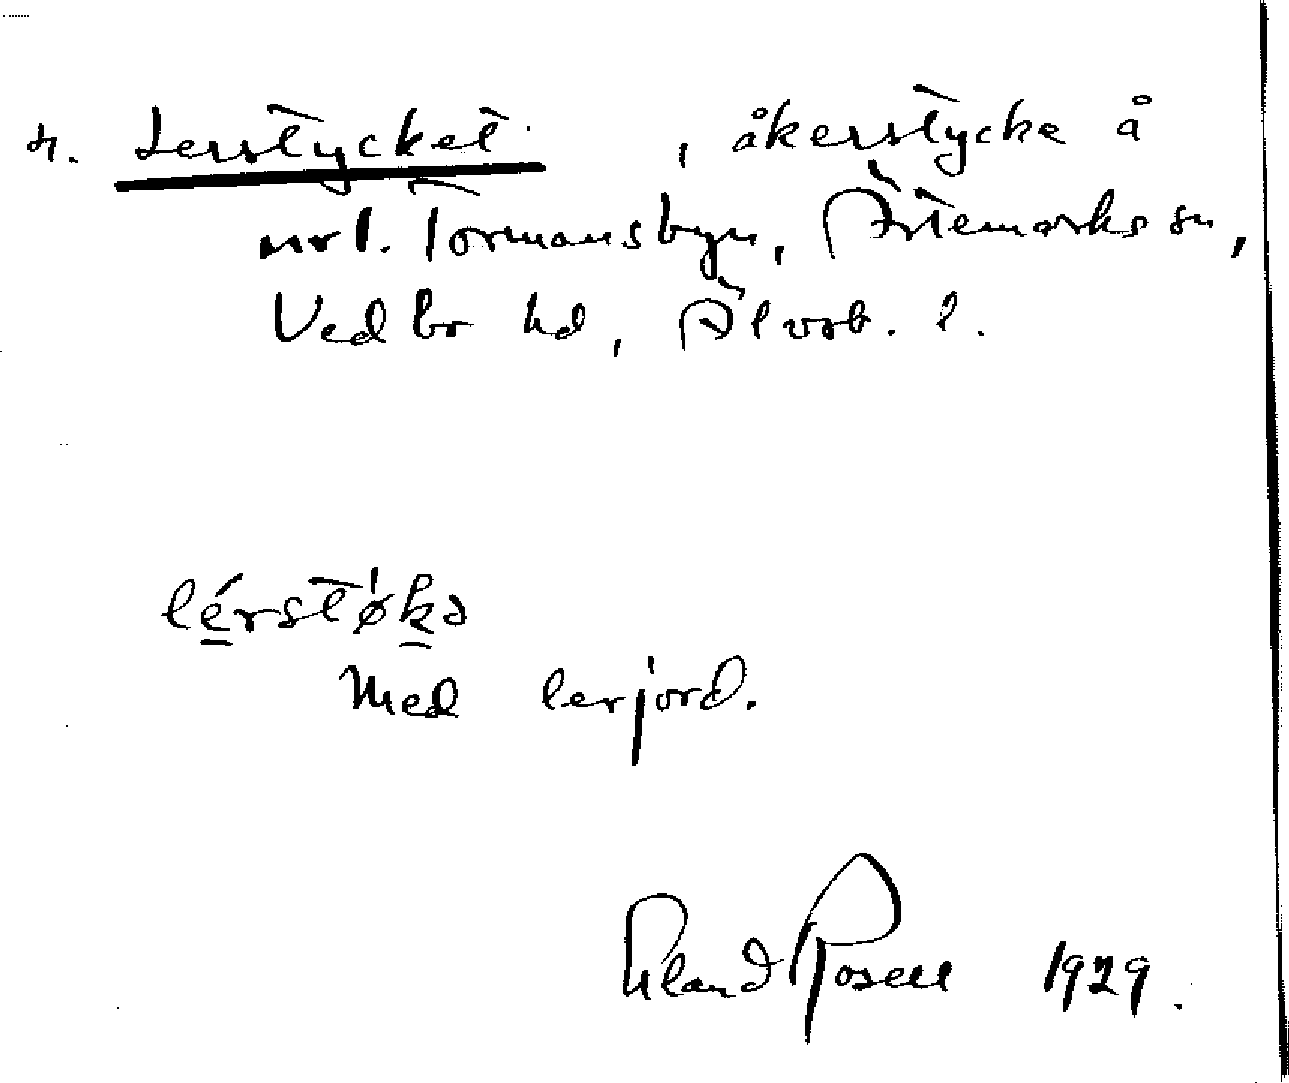 4. Lerstycket, åkerstycke å
nrl. Tormansbyn, Ärtemarks sn,
Vedbo hd, Älvsb. l.
lérstø̀kə
Med lerjord.
Erland Rosell 1929.